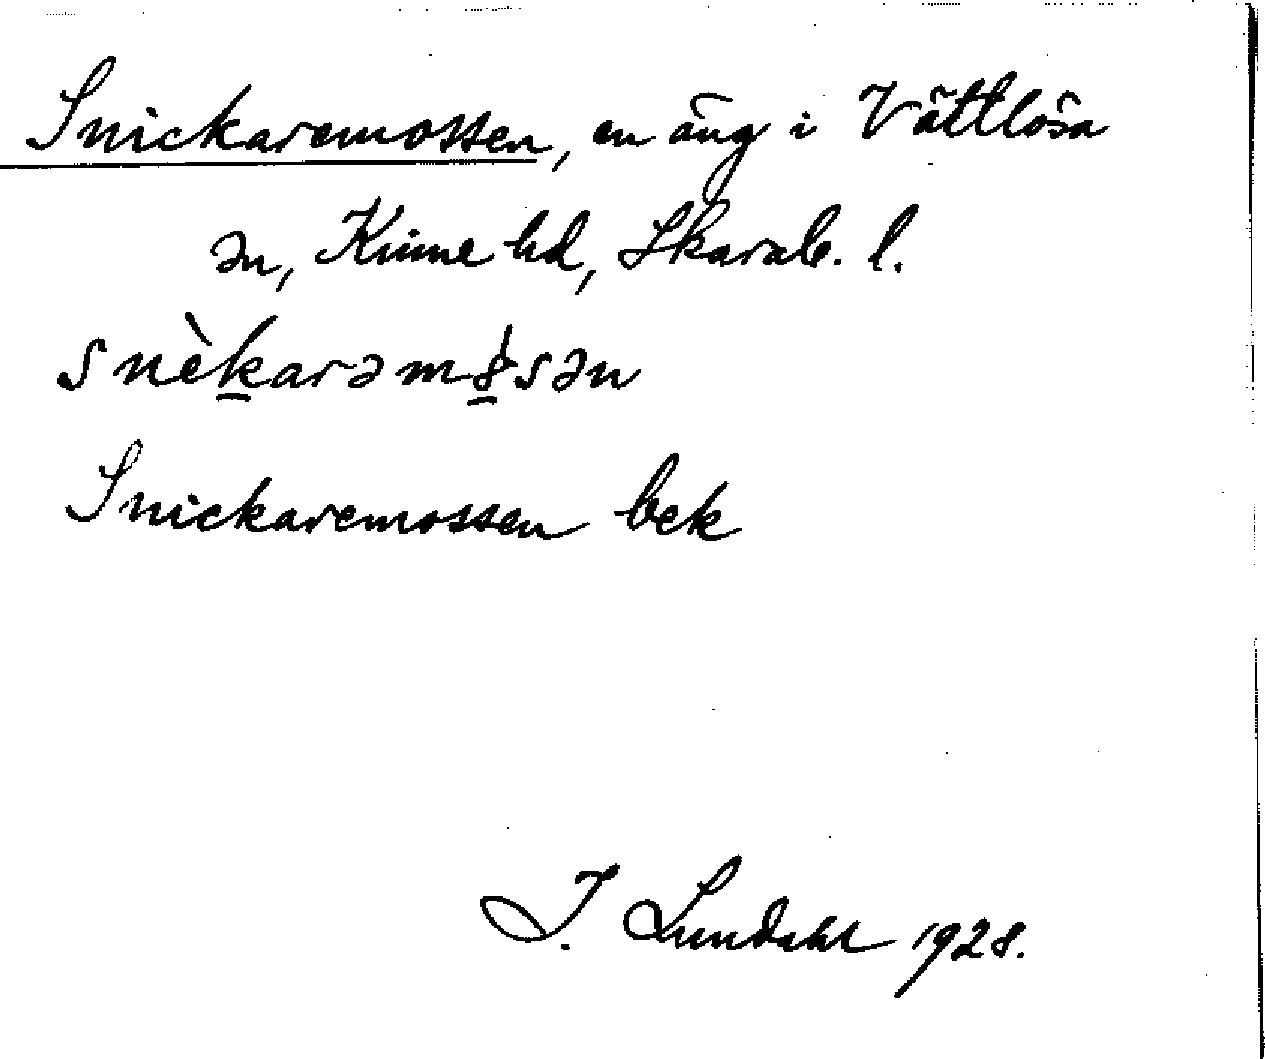 Snickaremossen, en äng i Vättlösa
sn, Kinne hd, Skarab. l.
snèkarəmo̱sən
Snickaremossen bek
I. Lundahl 1928.